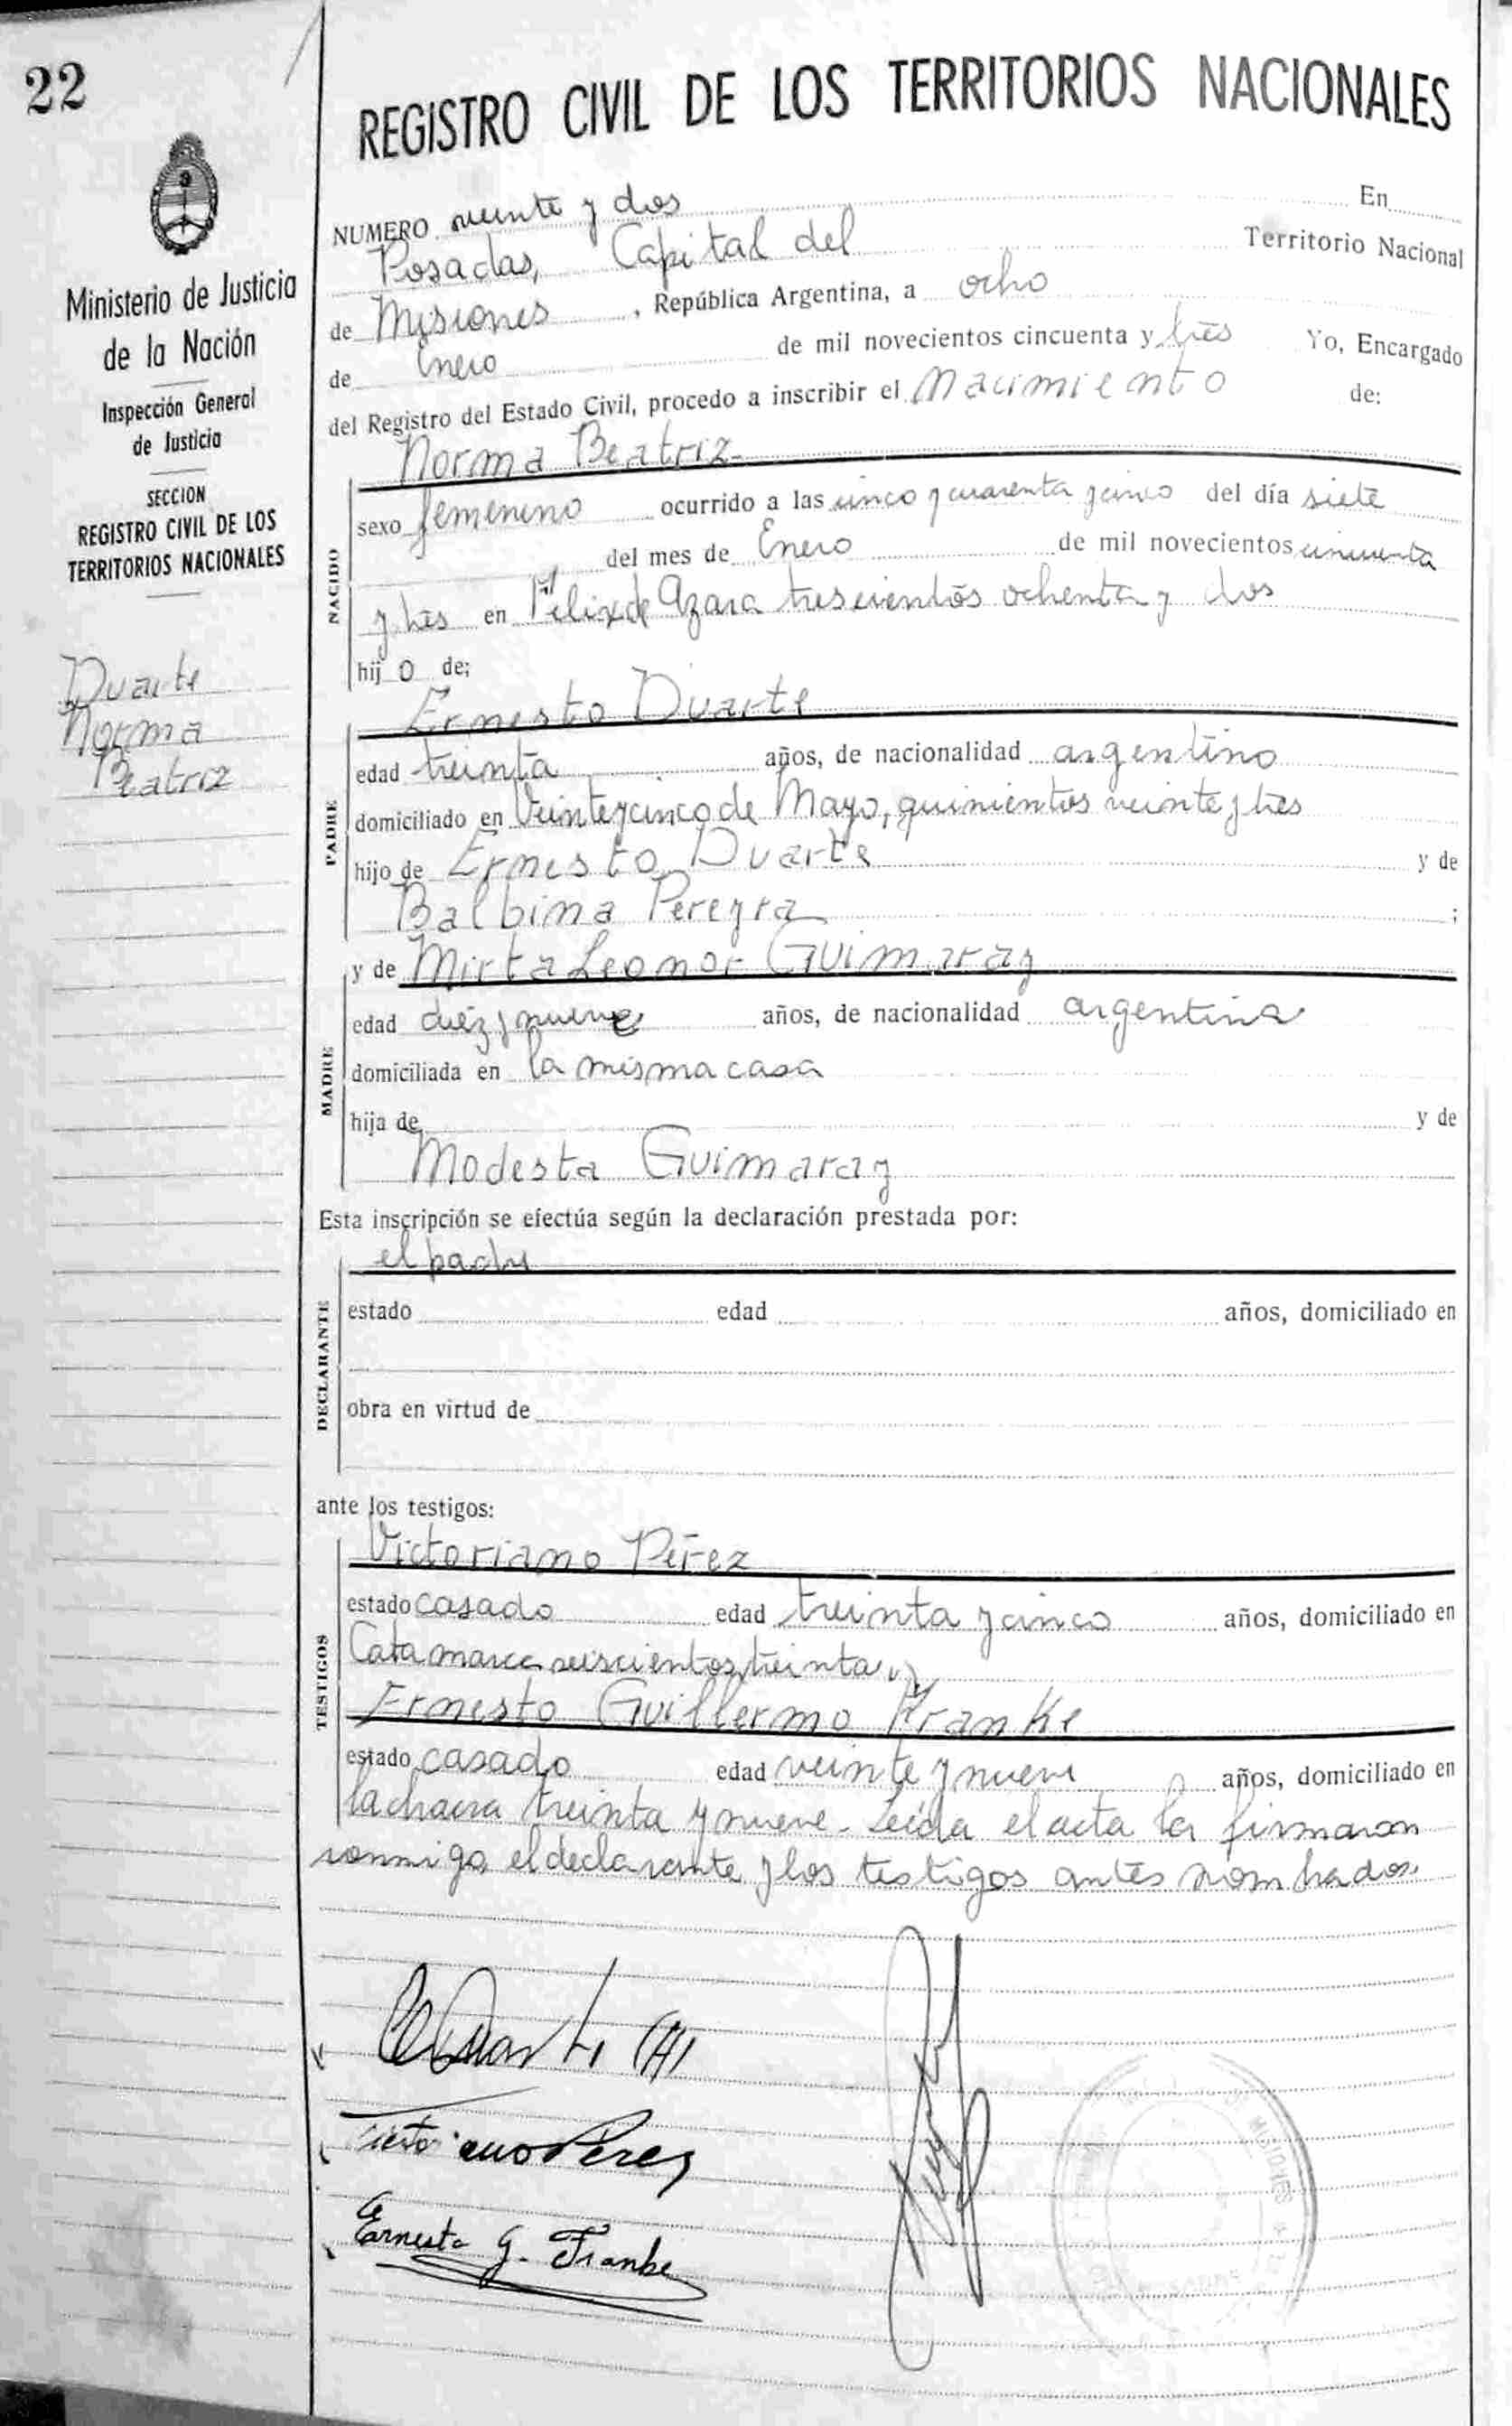 22
REGISTRO CIVIL DE LOS TERRITORIOS NACIONALES
Ministerio de Justicia
de la Nación
Inspección General
de Justicia
SECCION
REGISTRO CIVIL DE LOS
TERRITORIOS NACIONALES
Duarte
Norma
Beatriz
NUMERO veinte y dos En
Posadas, Capital del Territorio Nacional
de Misiones, República Argentina, a ocho
de Enero de mil novecientos cincuenta y tres Yo, Encargado
del Registro del Estado Civil, procedo a inscribir el Nacimiento de:
Norma Beatriz
NACIDO
sexo femenino ocurrido a las cinco y cuarenta y cinco del día siete
del mes de Enero de mil novecientos cincuenta
y tres en Felix de Azara trescientos ochenta y dos
hij o de;
Ernesto Duarte
PADRE
edad treinta años, de nacionalidad argentino
domiciliado en Veinte y cinco de Mayo, quinientos veinte y tres
hijo de Ernesto Duarte y de
Balbina Pereyra ;
y de Mirta Leonor Guimaray
MADRE
edad diez y nueve años, de nacionalidad argentina
domiciliada en la misma casa
hija de y de
Modesta Guimaray
Esta inscripción se efectúa según la declaración prestada por:
el padre
DECLARANTE
estado edad años, domiciliado en
obra en virtud de
ante los testigos:
Victoriano Pérez
TESTIGOS
estado casado edad treinta y cinco años, domiciliado en
Catamarca seiscientos treinta y
Ernesto Guillermo Franke
estado casado edad veinte y nueve años, domiciliado en
la chacra treinta y nueve - Leída el acta la firmaron
conmigo el declarante y los testigos antes nombrados.
EDuarte (H)
Victoriano Perez
Ernesto G. Franke
MISIONES